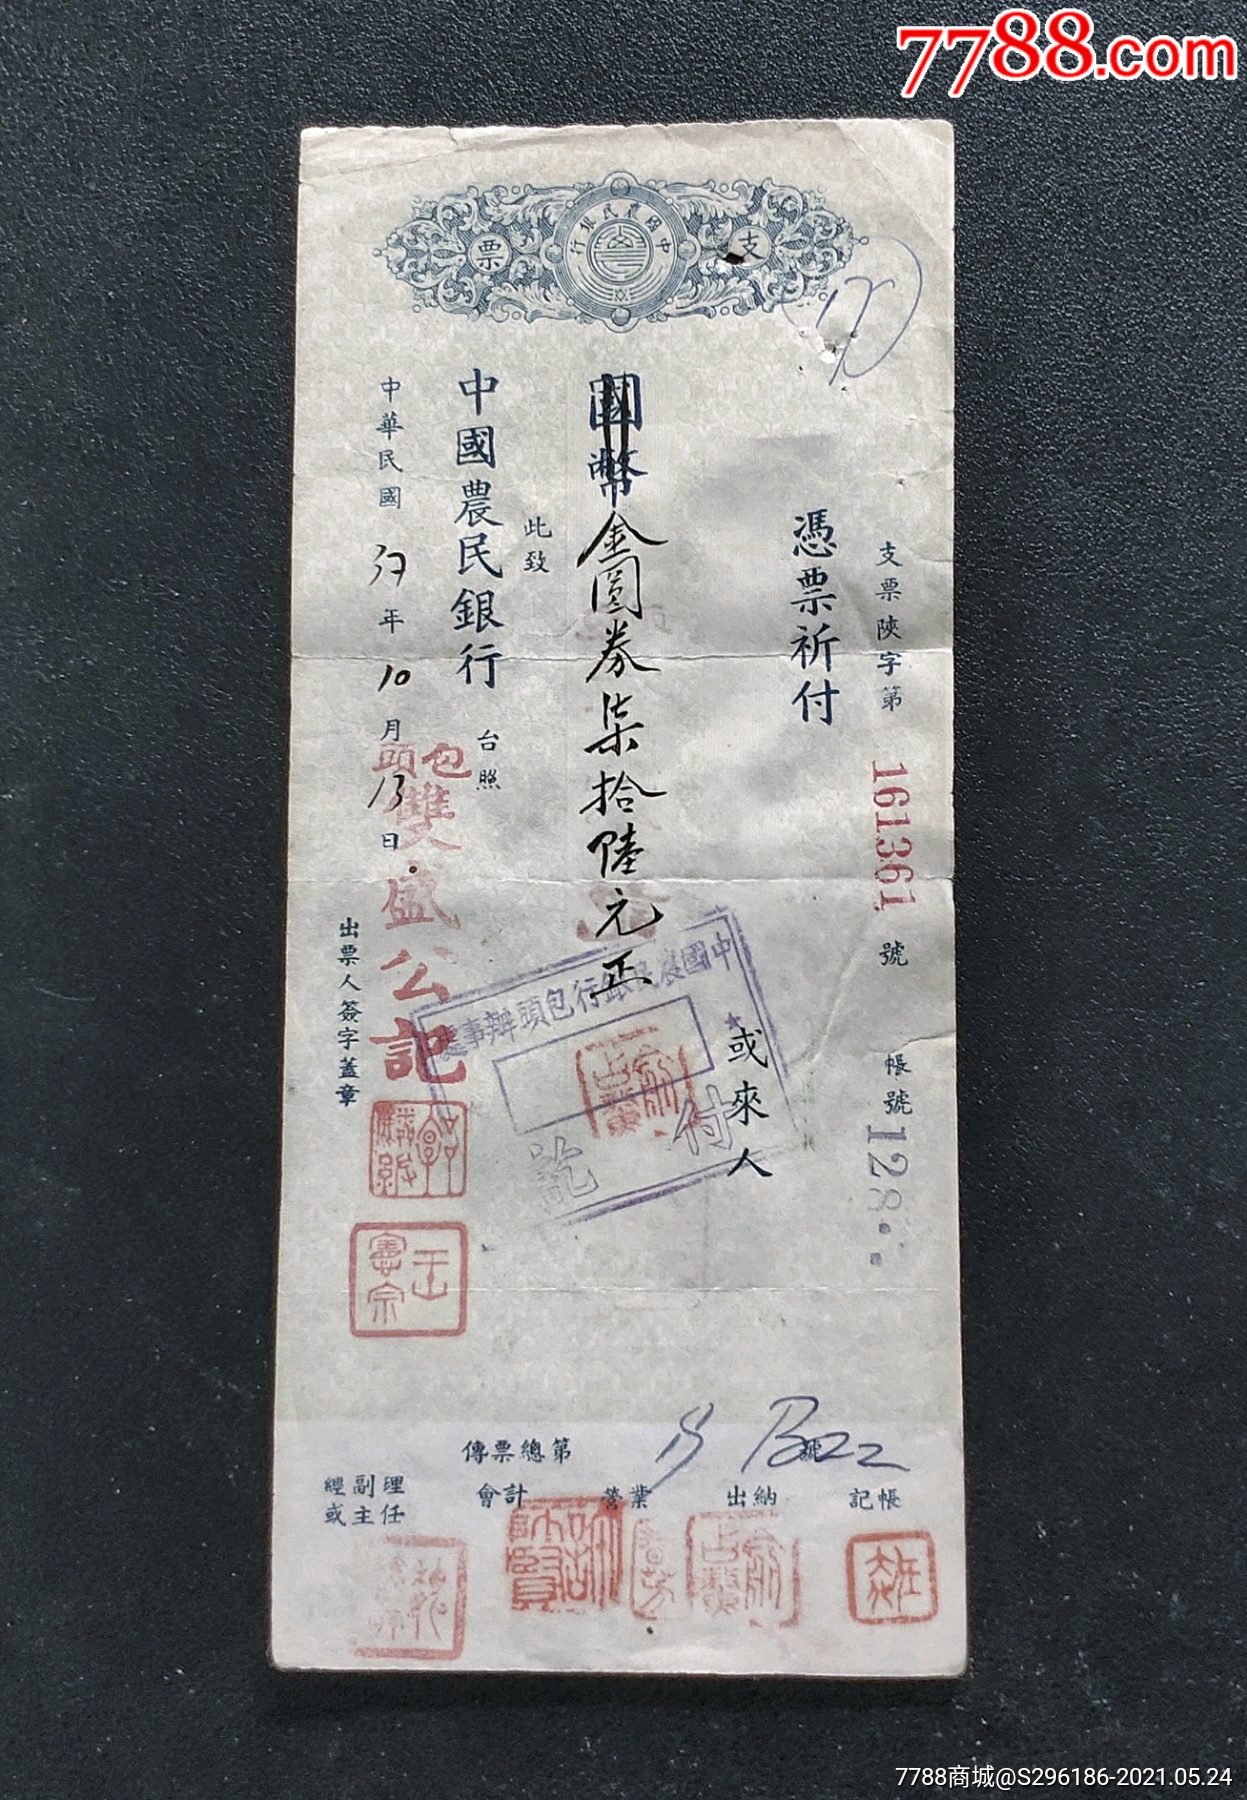 7788.com
中國農民銀行
支票
支票陝字第 161361 號 帳號 128
憑票祈付
或來人
國幣金圓券柒拾陸元正
此致
中國農民銀行 台照
中華民國 37 年 10 月 13 日
包頭
雙盛公記
出票人簽字蓋章
中國農民銀行包頭辦事處
付訖
王憲宗
傳票總第 號
經副理或主任
會計
營業
出納
記帳
7788商城@S296186-2021.05.24